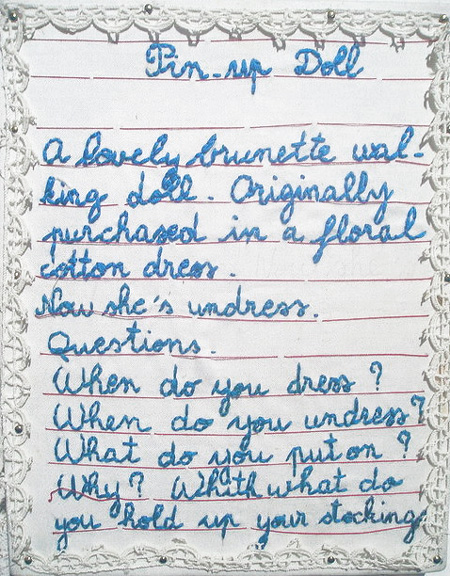 Pin-up Doll
A lovely brunette wal-
king doll. Originally
purchased in a floral
cotton dress.
Now she's undress.
Questions.
When do you dress?
When do you undress?
What do you put on?
Why? Whith what do
you hold up your stocking